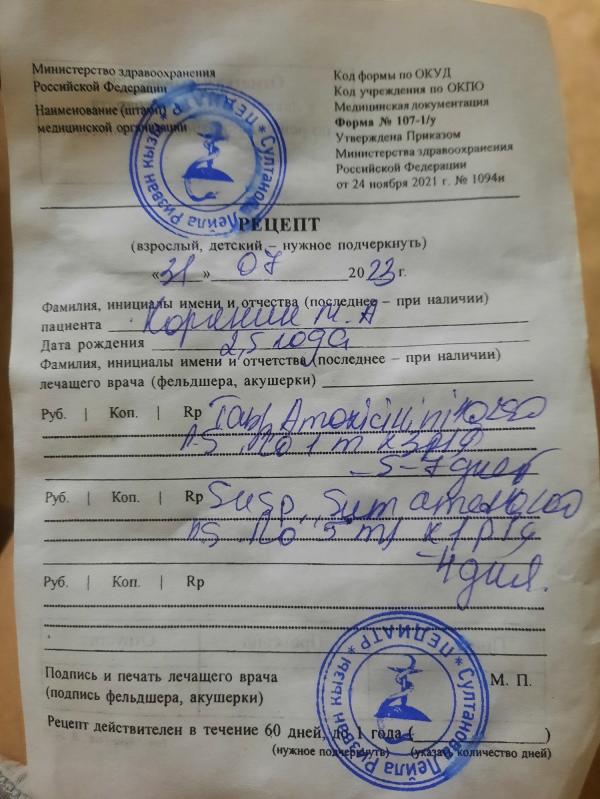 Министерство здравоохранения
Российской Федерации
Наименование (штамп)
медицинской организации
Код формы по ОКУД
Код учреждения по ОКПО
Медицинская документация
Форма № 107-1/у
Утверждена Приказом
Министерства здравоохранения
Российской Федерации
от 24 ноября 2021 г. № 1094н
* ПЕДИАТР * Султанова Лейла Ризван кызы
РЕЦЕПТ
(взрослый, детский – нужное подчеркнуть)
«31» 07 2023 г.
Фамилия, инициалы имени и отчества (последнее – при наличии)
пациента
Дата рождения 2,5 года
Фамилия, инициалы имени и отчетства (последнее – при наличии)
лечащего врача (фельдшера, акушерки)
Руб. | Коп. | Rp Tabl. Amoxicilini
1 т x 3 р/д
5-7 дней
Руб. | Коп. | Rp Susp. Sumamed
5 ml x 1 р/д
4 дня.
Руб. | Коп. | Rp
Подпись и печать лечащего врача
(подпись фельдшера, акушерки)
М. П.
* ПЕДИАТР * Султанова Лейла Ризван кызы
Рецепт действителен в течение 60 дней, до 1 года (
)
(нужное подчеркнуть) (указать количество дней)